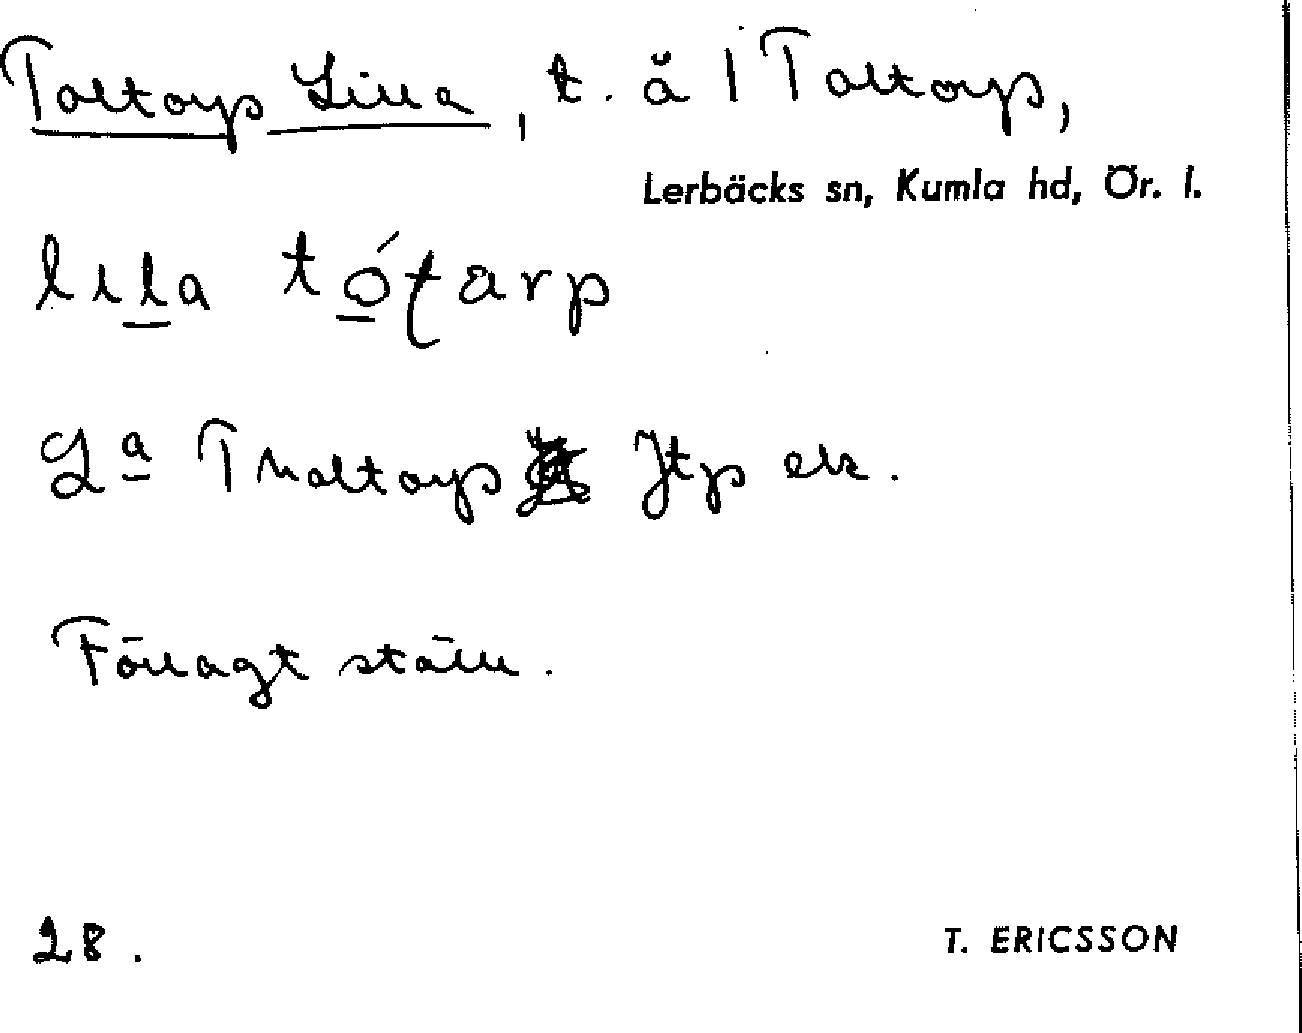 Toltorp Lilla, t. å 1 Toltorp,
Lerbäcks sn, Kumla hd, Ör. l.
lila tó̱tarp
La Tholtorp Jtp ek.
Förlagt ställe.
28.
T. ERICSSON